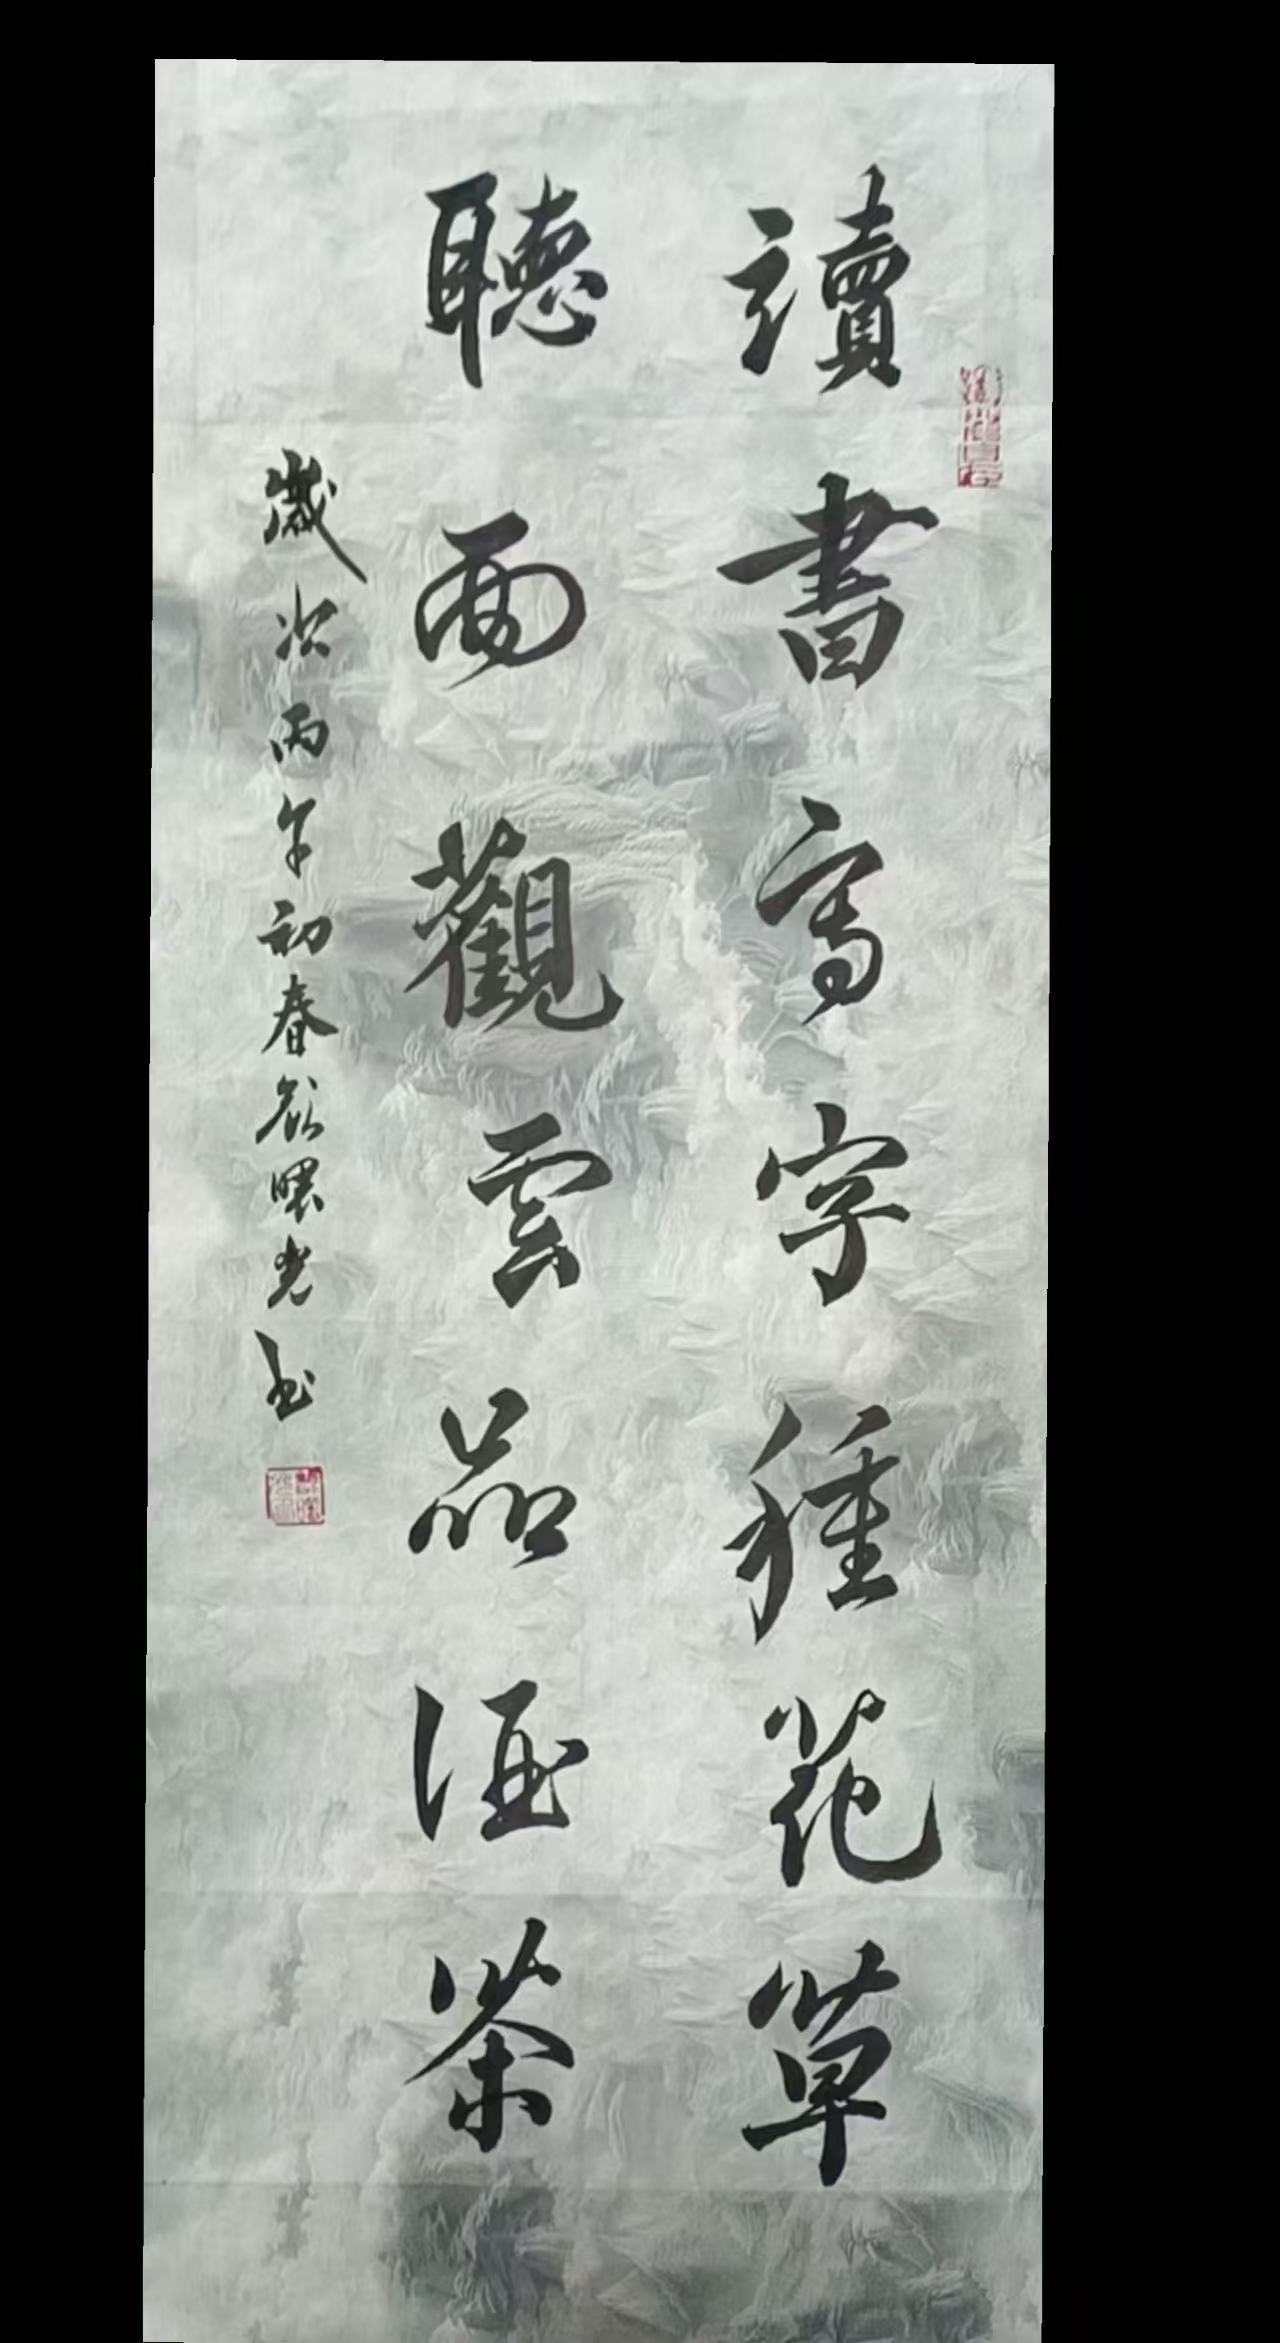 讀書寫字種花草
聽雨觀雲品酒茶
歲次丙午初春
光書